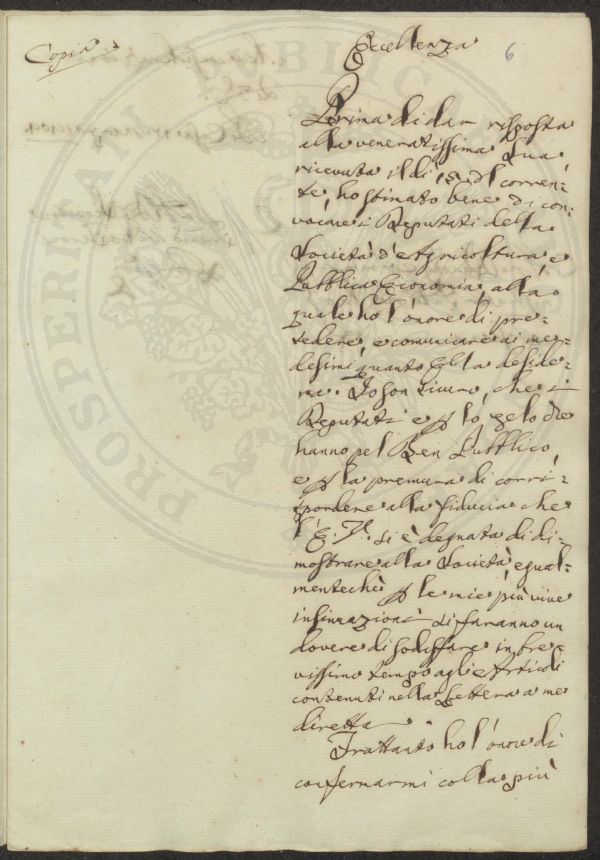 Copia
Eccellenza
6
Prima di dar risposta
alla veneratissima Sua
ricevuta il dì 15. del corren=
te, ho stimato bene di con=
vocare i Deputati della
Società d'Agricoltura e
Pubblica Economia, alla
quale ho l'onore di pre=
sedere, e comunicare ai me=
desimi quanto Ella deside=
ra. Io son sicuro, che i
Deputati e p lo zelo che
hanno pel Ben Pubblico,
e p la premura di corri=
spondere alla fiducia che
l'E. V. si è degnata di di=
mostrare alla Società egual=
mentechè p le mie più vive
insinuazioni si faranno un
dovere di sodisfare in bre=
vissimo tempo agli Articoli
contenuti nella Lettera a me
diretta.
Frattanto ho l'onore di
confermarmi colla più
PROSPERITATI PUBLICAE